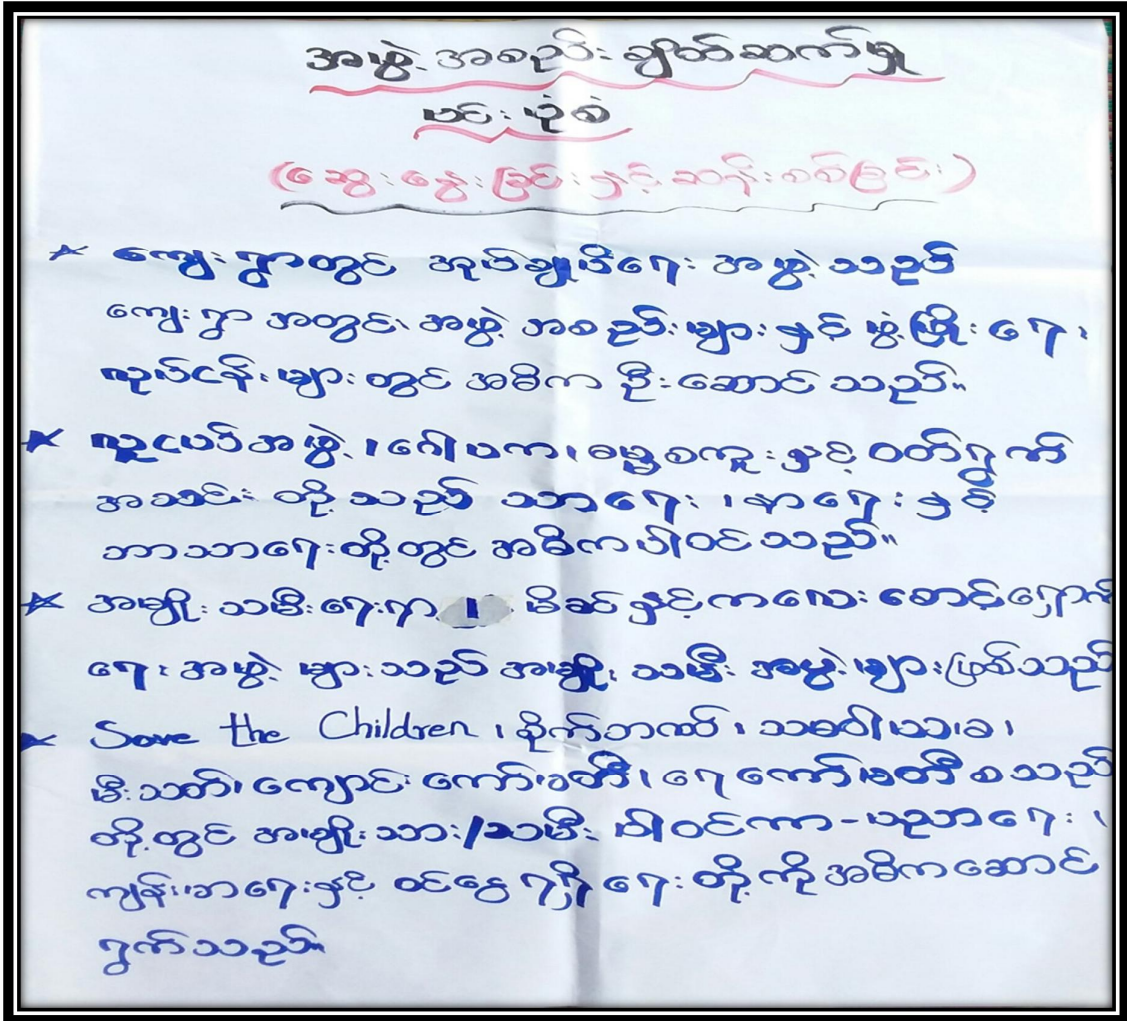 အဖွဲ့အစည်းချိတ်ဆက်မှု
ပင်းပုံစံ
(ဆွေးနွေးခြင်းနှင့်ဆန်းစစ်ခြင်း)
ကျေးရွာတွင် အုပ်ချုပ်ရေးအဖွဲ့သည်
ကျေးရွာအတွင်း၊ အဖွဲ့အစည်းများနှင့် ဖွံ့ဖြိုးရေး
လုပ်ငန်းများတွင် အဓိက ဦးဆောင်သည်။
လူငယ်အဖွဲ့၊ ဂေါပက၊ ဓမ္မစကူးနှင့် ဝတ်ရွတ်
အသင်းတို့သည် သာရေး၊ နာရေးနှင့်
ဘာသာရေးတို့တွင် အဓိကပါဝင်သည်။
အမျိုးသမီးရေးရာ၊ မိခင်နှင့်ကလေးစောင့်ရှောက်
ရေးအဖွဲ့များသည် အမျိုးသမီးအဖွဲ့များဖြစ်သည်
Save the Children၊ စိုက်ဘဏ်၊ သမဝါယမ၊
မီးသတ်၊ ကျောင်းကော်မတီ၊ ရေကော်မတီစသည်
တို့တွင် အမျိုးသား/သမီး ပါဝင်ကာ-ပညာရေး၊
ကျန်းမာရေးနှင့် ဝင်ငွေရရှိရေးတို့ကိုအဓိကဆောင်
ရွက်သည်။